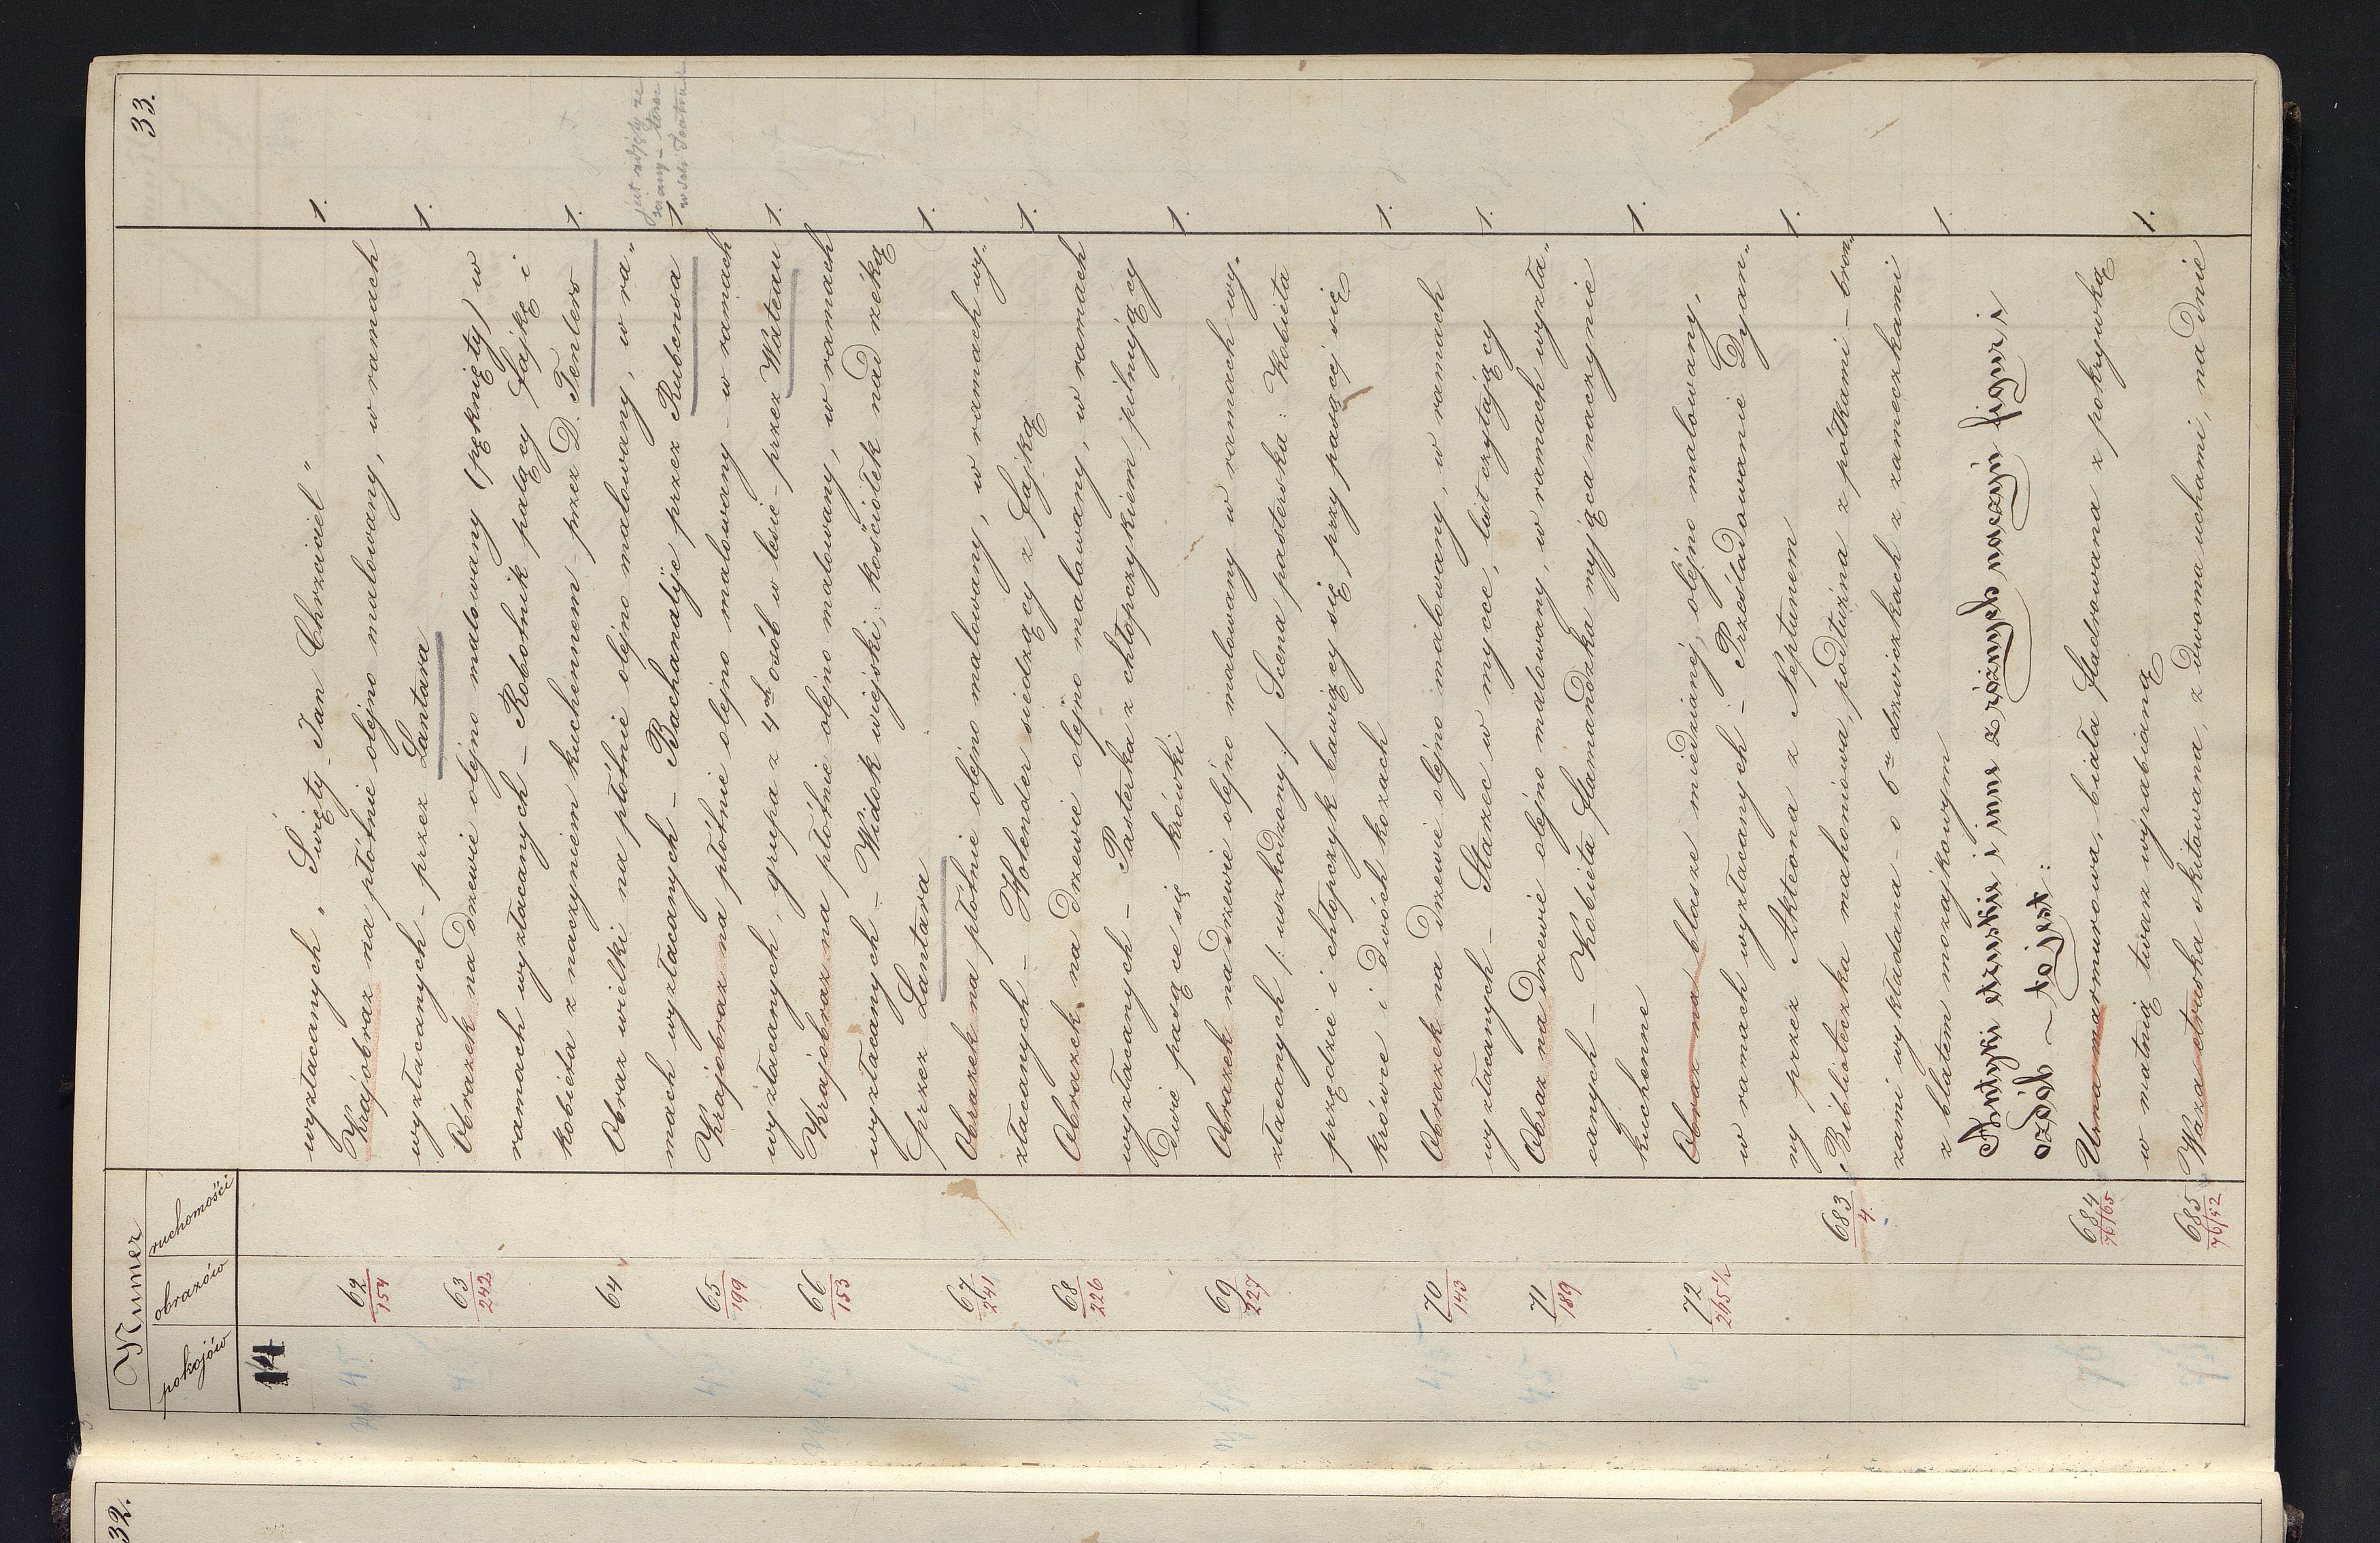 33.
Numer
pokojów obrazów ruchomości
14
wyzłacanych „Święty Jan Chrzciciel” 1.
62/154 Krajobraz na płótnie olejno malowany, w ramach
wyzłacanych – przez Lantara 1.
63/242 Obrazek na drzewie olejno malowany (pęknięty) w
ramach wyzłacanych – Robotnik palący fajkę i
kobieta z naczyniem kuchennem – przez D. Teniers 1.
64 Obraz wielki na płótnie olejno malowany, w ra„
mach wyzłacanych – Bachanalije przez Rubensa 1.
już zdjęty ze
w sali Teatru
65/199 Krajobraz na płótnie olejno malowany – w ramach
wyzłacanych, grupa z 4ch osób w lesie – przez Wateau 1.
66/153 Krajobraz na płótnie olejno malowany, w ramach
wyzłacanych – Widok wiejski, kościołek nad rzéką
przez Lantara 1.
67/241 Obrazek na płótnie olejno malowany, w ramach wy„
złacanych – Holender siedzący z fajką 1.
68/226 Obrazek na drzewie olejno malowany, w ramach
wyzłacanych – Pasterka z chłopczykiem pilnujący
dwie pasące się krówki 1.
69/227 Obrazek na drzewie olejno malowany w ramach wy„
złacanych /: uszkodzony :/ Scena pasterska: Kobieta
przędzie i chłopczyk bawiący się przy pasącej się
krówce i dwóch kozach 1.
70/140 Obrazek na drzewie olejno malowany, w ramach
wyzłacanych – Starzec w mycce, list czytający 1.
71/189 Obraz na drzewie olejno malowany, w ramach wyzła„
canych – Kobieta flamandzka myjąca naczynie
kuchenne 1.
72/265½ Obraz na blasze miedzianej, olejno malowany,
w ramach wyzłacanych – Prześladowanie Dyan„
ny przez Akteona z Neptunem 1.
683/4. Biblioteczka mahoniowa, podłużna z półkami – bron„
zami wykładana – o 6u drzwiczkach z zameczkami
z blatem mozajkowym 1.
Antyki etruskie i inne z różnych naczyń figur i
ozdób – to jest:
684/76/65 Urna marmurowa, biała fladrowana z pokrywką
w matnią twarz wyrabianą 1.
685/76/52 Waza etruska skitowana, z dwoma uchami, na dnie
32.